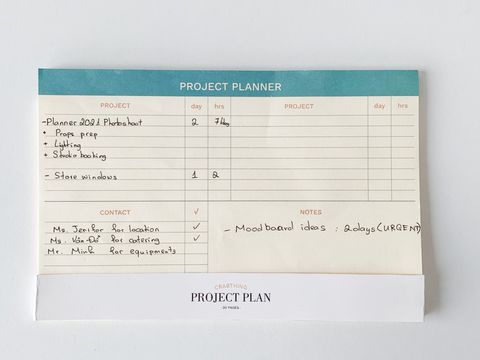 PROJECT PLANNER
PROJECT day hrs PROJECT day hrs
- Planner 2021 Photoshoot 2
+ Props prep
+ Lighting
+ Studio booking
- Store windows 1 2
CONTACT ✓ NOTES
Ms. for location ✓
Ms. Vân Đỗ for catering ✓
Mr. Minh for equipments
- Moodboard ideas : 2days (URGENT)
CRABTHING
PROJECT PLAN
PAGES